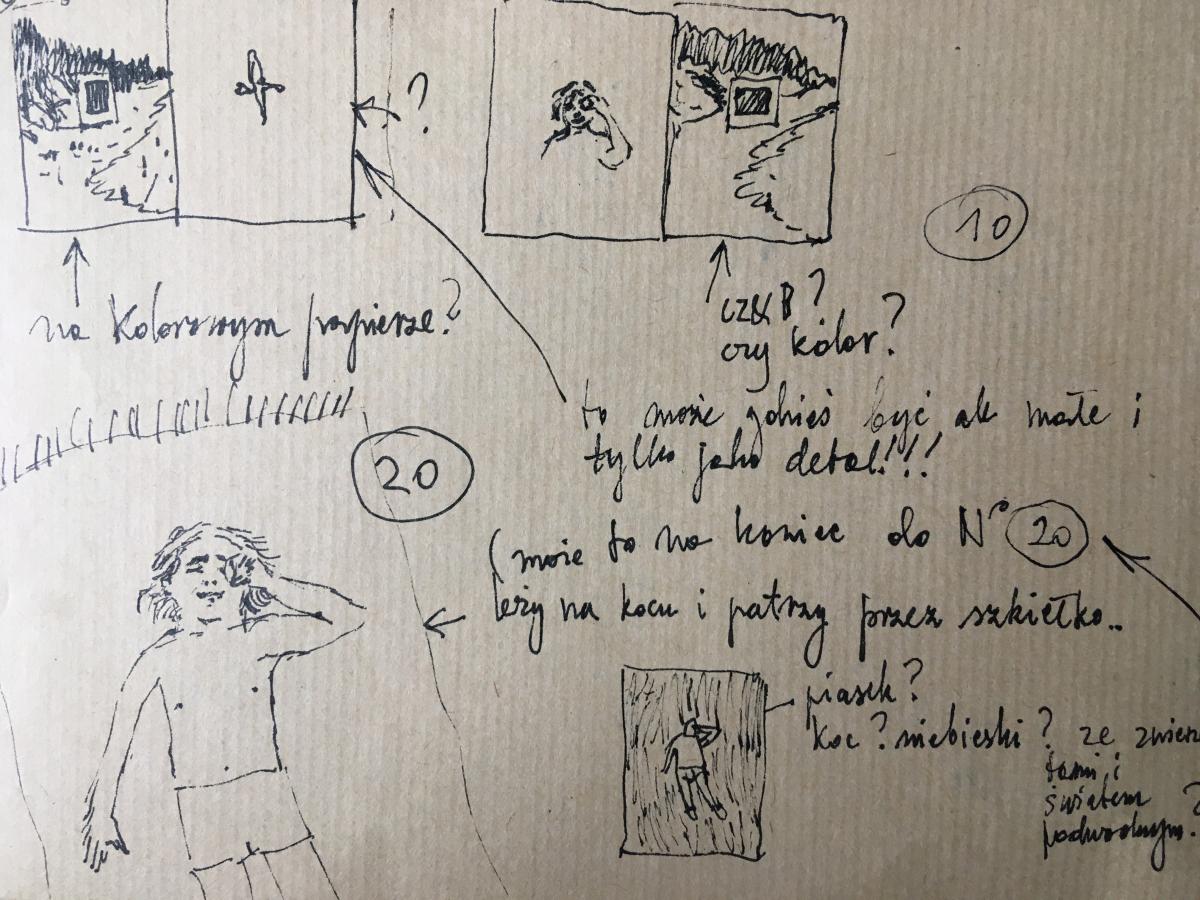 ?
10
na kolorowym papierze?
cz&B?
czy kolor?
to może gdzieś być ale małe i
tylko jako detal!!!
20
(może to na koniec do Nº 20
leży na kocu i patrzy przez szkiełko..
piasek?
koc? niebieski? ze zwierzę
tami i
światem ?
podwodnym.